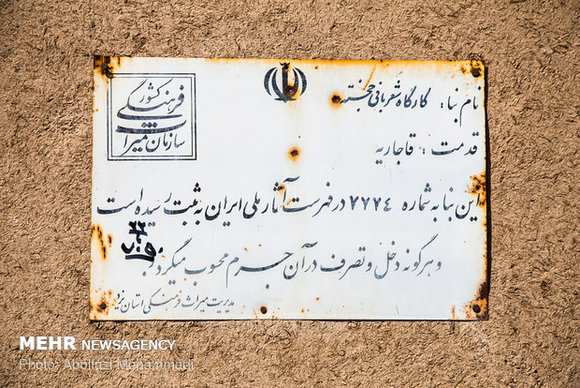 سازمان میراث
فرهنگی کشور
نام بنا: کارگاه شعربافی خجسته
قدمت: قاجاریه
این بنا به شماره ۷۷۷٤ در فهرست آثار ملی ایران به ثبت رسیده است
و هرگونه دخل و تصرف در آن جرم محسوب میگردد.
مدیریت میراث فرهنگی استان یزد
MEHR NEWSAGENCY
Photo: Abolfazl Mohammadi